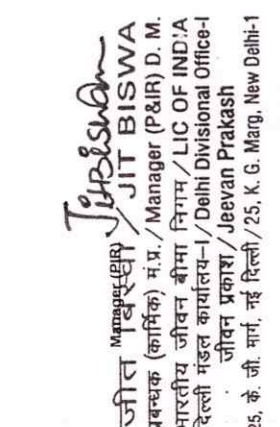 JitBiswas
Manager (PIR)
जीत / JIT BISWA
प्रबन्धक (कार्मिक) मं.प्र. / Manager (P&IR) D. M.
भारतीय जीवन बीमा निगम / LIC OF INDIA
दिल्ली मंडल कार्यालय-I / Delhi Divisional Office-I
जीवन प्रकाश / Jeevan Prakash
25, के. जी. मार्ग, नई दिल्ली / 25, K. G. Marg, New Delhi-1